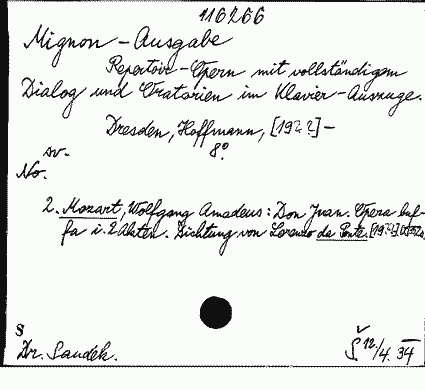 116266
Mignon - Ausgabe
Repertoir-Opern mit vollständigem
Dialog und Oratorien im Klavier-Auszuge.
Dresden, Hoffmann, [19??] -
sv. 8°
No.
2. Mozart, Wolfgang Amadeus: Don Juan. Opera buf-
fa i. 2 Akten. Dichtung von Lorenzo da Ponte. [19??]
S
Dr. Sandek. Š 12/4. 34